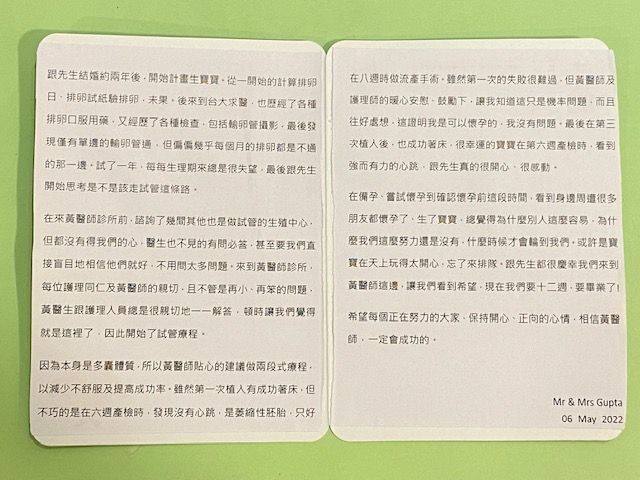 跟先生結婚約兩年後，開始計畫生寶寶。從一開始的計算排卵
日、排卵試紙驗排卵，未果。後來到台大求醫，也歷經了各種
排卵口服用藥，又經歷了各種檢查，包括輸卵管攝影，最後發
現僅有單邊的輸卵管通，但偏偏幾乎每個月的排卵都是不通
的那一邊。試了一年，每每生理期來總是很失望，最後跟先生
開始思考是不是該走試管這條路。
在來黃醫師診所前，諮詢了幾間其他也是做試管的生殖中心，
但都沒有得我們的心，醫生也不見的有問必答，甚至要我們直
接盲目地相信他們就好，不用問太多問題。來到黃醫師診所，
每位護理同仁及黃醫師的親切，且不管是再小、再笨的問題，
黃醫生跟護理人員總是很親切地一一解答，頓時讓我們覺得
就是這裡了，因此開始了試管療程。
因為本身是多囊體質，所以黃醫師貼心的建議做兩段式療程，
以減少不舒服及提高成功率。雖然第一次植入有成功著床，但
不巧的是在六週產檢時，發現沒有心跳，是萎縮性胚胎，只好
在八週時做流產手術。雖然第一次的失敗很難過，但黃醫師及
護理師的暖心安慰、鼓勵下，讓我知道這只是機率問題，而且
往好處想，這證明我是可以懷孕的，我沒有問題。最後在第三
次植入後，也成功著床，很幸運的寶寶在第六週產檢時，看到
強而有力的心跳，跟先生真的很開心、很感動。
在備孕、嘗試懷孕到確認懷孕前這段時間，看到身邊周遭很多
朋友都懷孕了、生了寶寶，總覺得為什麼別人這麼容易，為什
麼我們這麼努力還是沒有，什麼時候才會輪到我們。或許是寶
寶在天上玩得太開心，忘了來排隊。跟先生都很慶幸我們來到
黃醫師這邊，讓我們看到希望，現在我們要十二週，要畢業了!
希望每個正在努力的大家，保持開心、正向的心情，相信黃醫
師，一定會成功的。
Mr & Mrs Gupta
06 May 2022